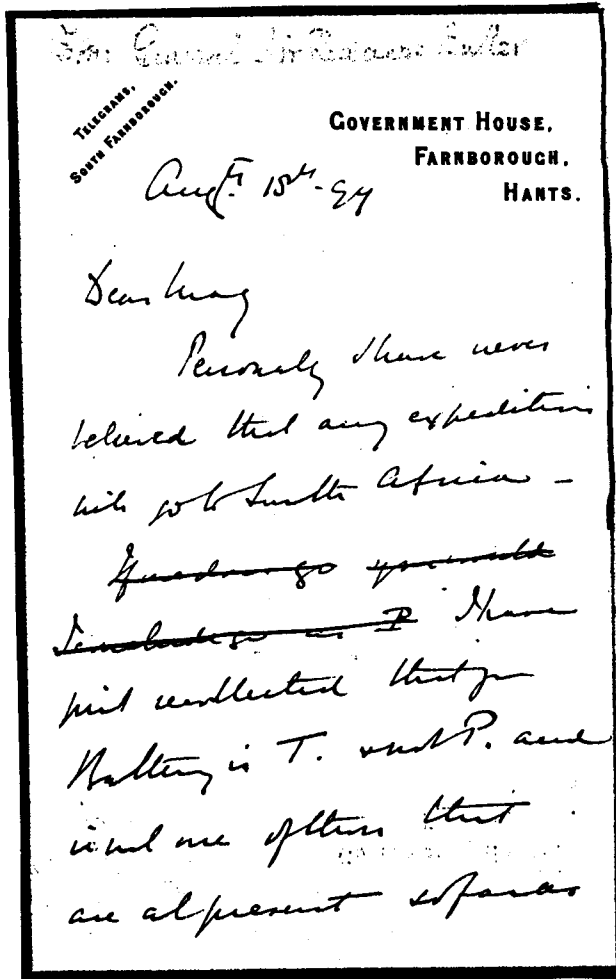 From General Sir Redvers Buller
TELEGRAMS,
SOUTH FARNBOROUGH.
GOVERNMENT HOUSE,
FARNBOROUGH,
HANTS.
Augt. 15th
Dear
Personally I have never
believed that any expedition
will go to South Africa –
you would
I have
just recollected that yr
Battery is T. & not P. and
is not one of those that
are at present so far as